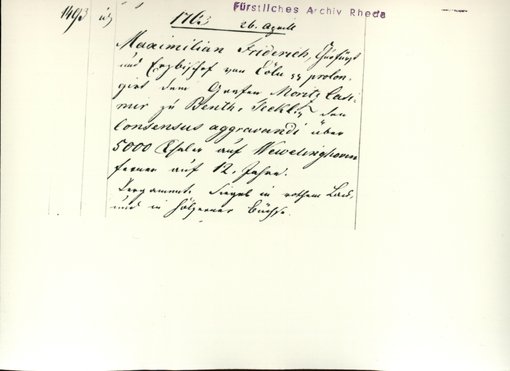 Fürstliches Archiv Rheda
1763
26. Aprill
Maximilian Friderich, Churfürst
und Erzbischof von Cöln pp prolon-
girt dem Grafen Moritz Casi-
mir zu Benth. Tecklbg den
Consensus aggravandi über
5000 Thaler auf Wevelinghoven
ferner auf 12 Jahre.
Pergament. Siegel in rothem Lack,
und in hölzerner Büchse.